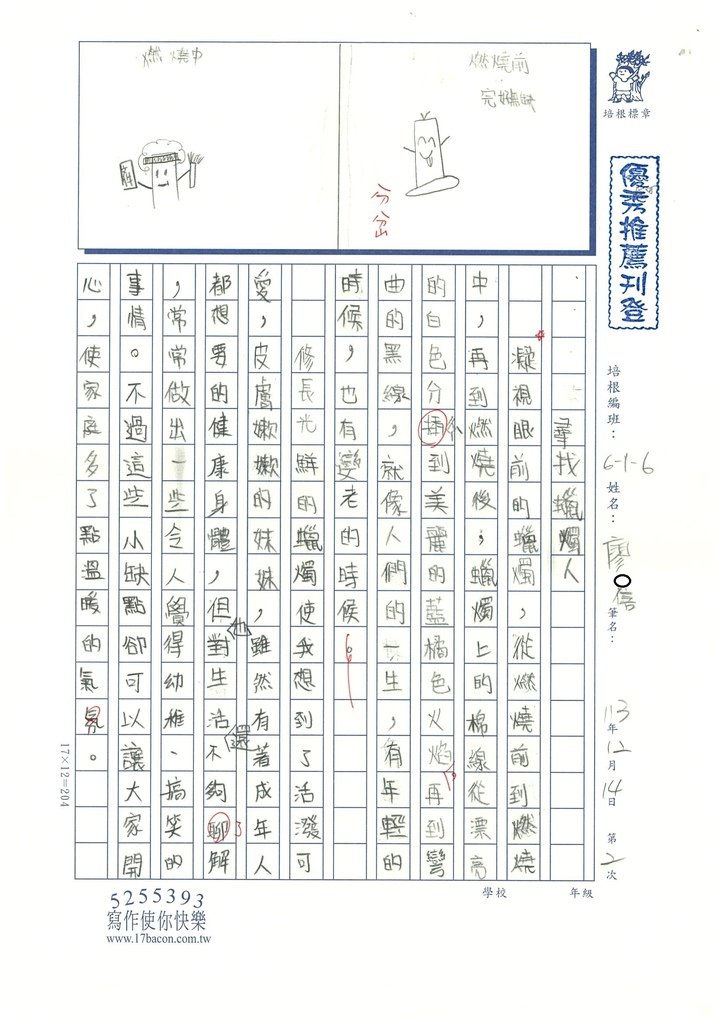 燃燒前
完好無缺
燃燒中
培根標章
優秀推薦刊登
培根編班：6-1-6 姓名：廖 信 筆名：
113年12月14日 第2次
學校 年級
尋找蠟燭人
凝視眼前的蠟燭，從燃燒前到燃燒
中，再到燃燒後；蠟燭上的棉線從漂亮
的白色分插到美麗的藍橘色火焰再到彎
曲的黑線，就像人們的一生，有年輕的
時候，也有變老的時候。
修長光鮮的蠟燭使我想到了活潑可
愛，皮膚嫩嫩的妹妹，雖然有著成年人
都想要的健康身體，但他對生活還不夠聊解
，常常做出一些令人覺得幼稚、搞笑的
事情。不過這些小缺點卻可以讓大家開
心，使家庭多了點溫暖的氣氛。
17×12=204
5255393
寫作使你快樂
www.17bacon.com.tw